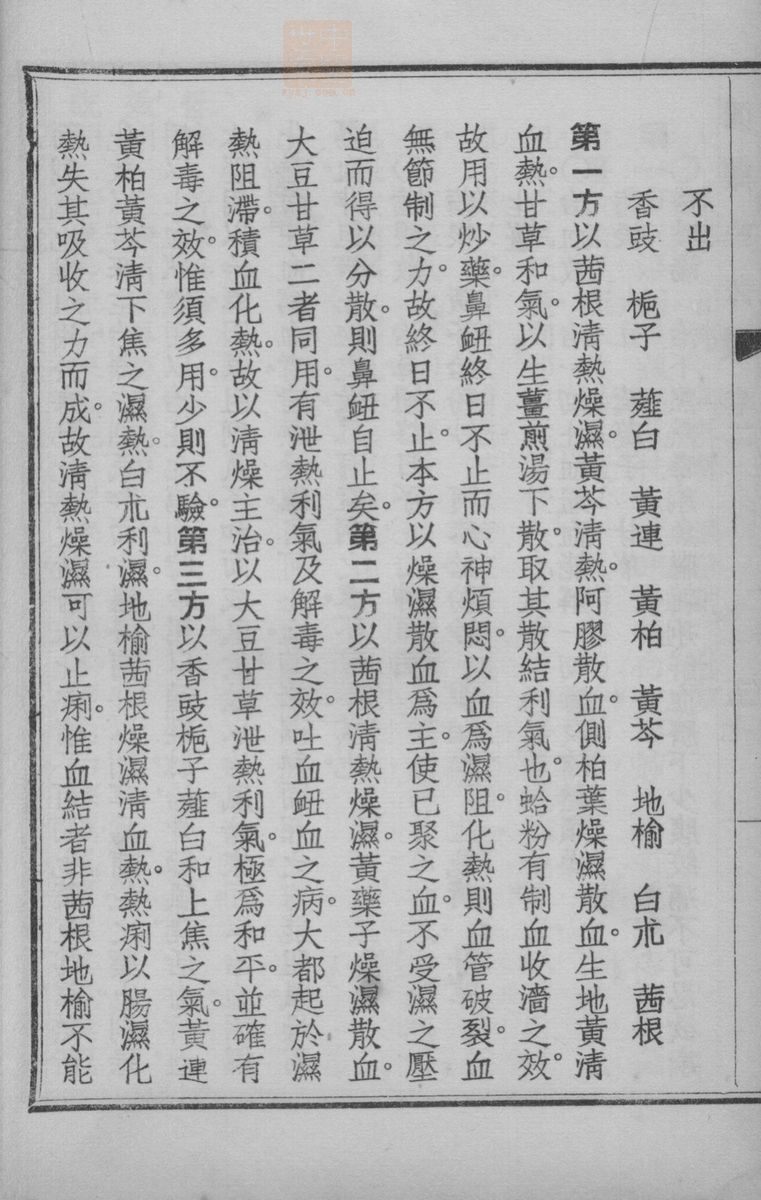 不出
香豉　梔子　薤白　黃連　黃柏　黃芩　地榆　白朮　茜根
第一方以茜根淸熱燥濕。黃芩淸熱。阿膠散血。側柏葉燥濕散血。生地黃淸
血熱。甘草和氣。以生薑煎湯下散。取其散結利氣也。蛤粉有制血收濇之效。
故用以炒藥。鼻衄終日不止而心神煩悶。以血爲濕阻。化熱則血管破裂。血
無節制之力。故終日不止。本方以燥濕散血爲主。使已聚之血。不受濕之壓
迫而得以分散。則鼻衄自止矣。第二方以茜根淸熱燥濕。黃藥子燥濕散血。
大豆甘草二者同用。有泄熱利氣及解毒之效。吐血衄血之病。大都起於濕
熱阻滯。積血化熱。故以淸燥主治。以大豆甘草泄熱利氣。極爲和平。並確有
解毒之效。惟須多用。少則不驗。第三方以香豉梔子薤白和上焦之氣。黃連
黃柏黃芩淸下焦之濕熱。白朮利濕。地榆茜根燥濕淸血熱。熱痢以腸濕化
熱失其吸收之力而成。故淸熱燥濕可以止痢。惟血結者非茜根地榆不能